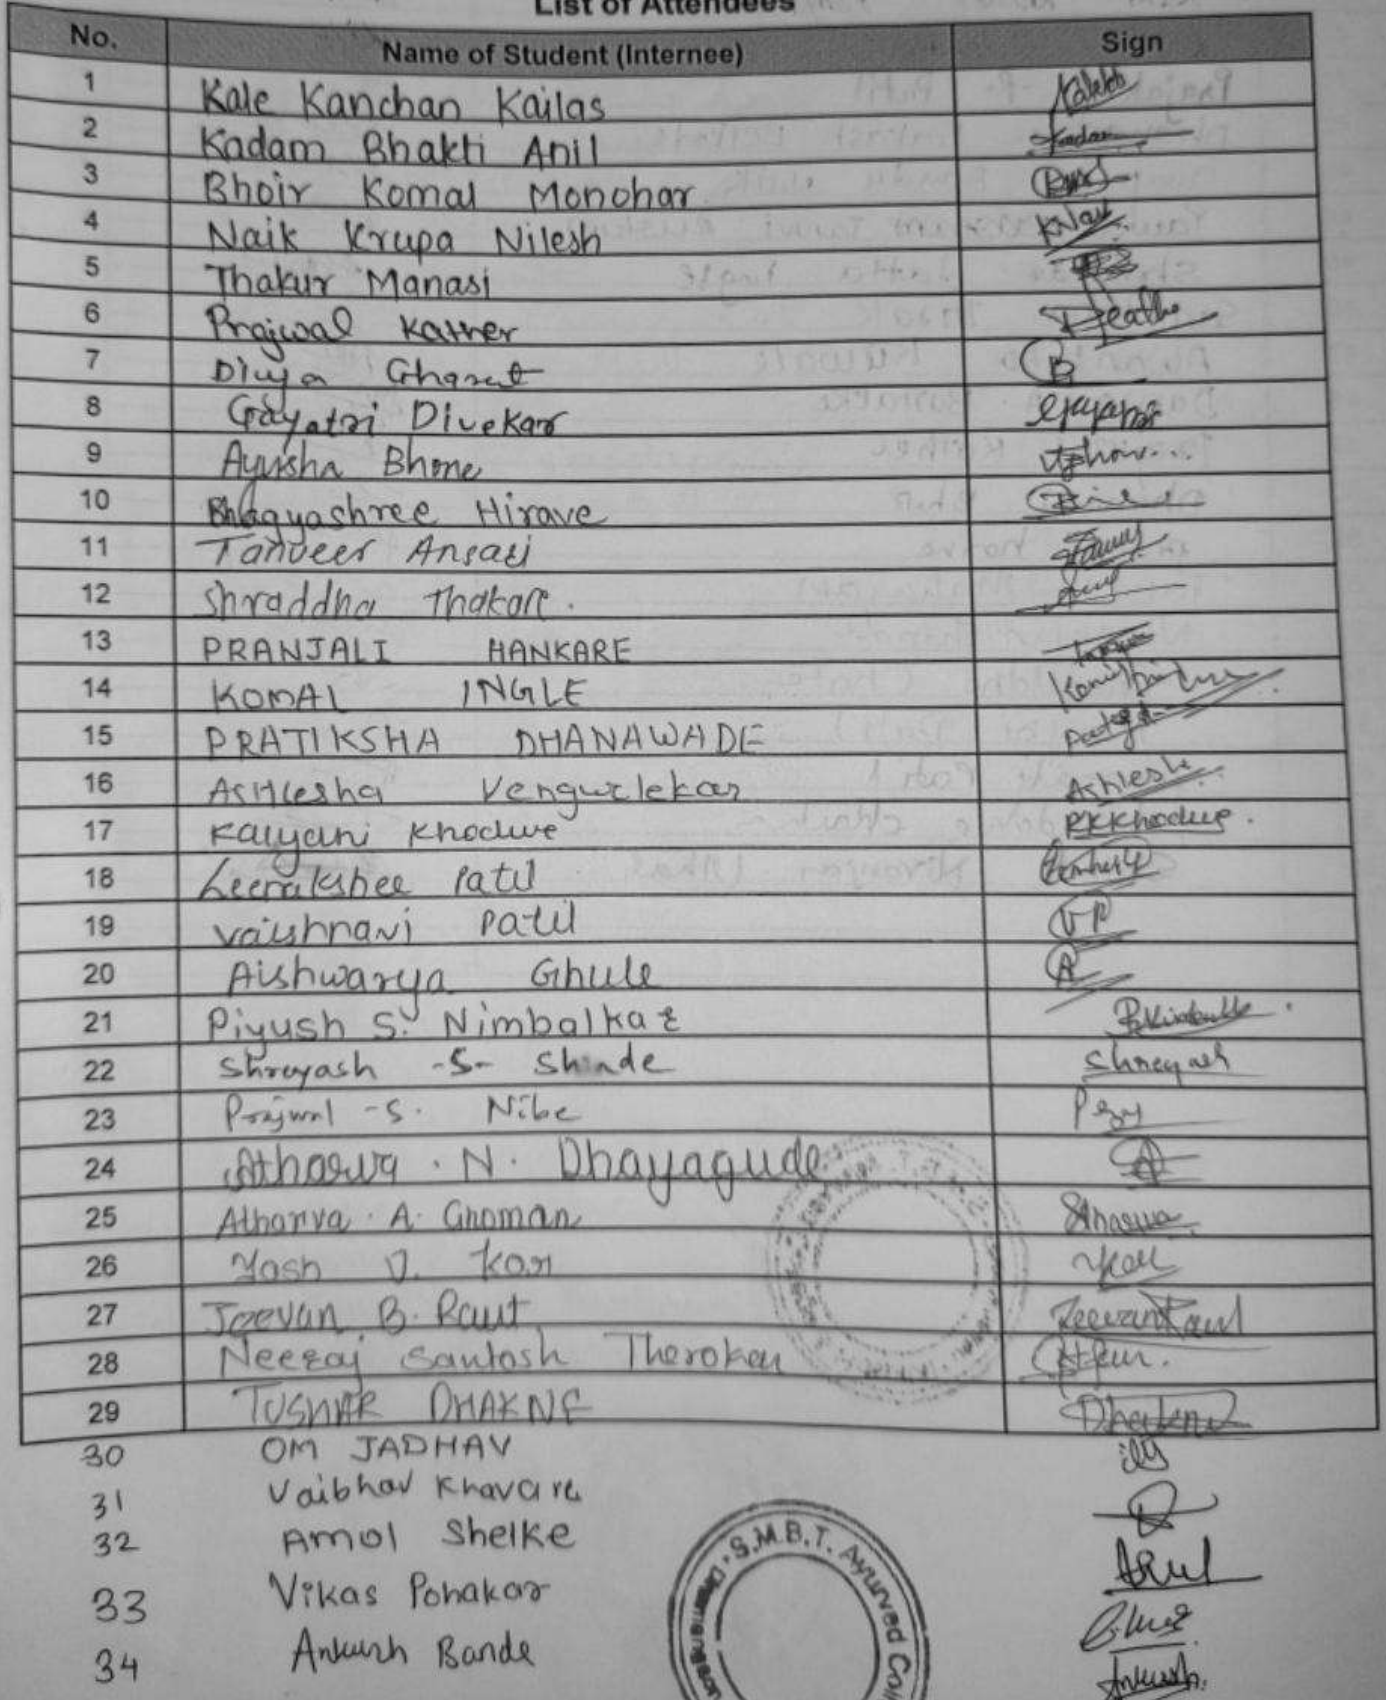 List of Attendees
No. Name of Student (Internee) Sign
1 Kale Kanchan Kailas
2 Kadam Bhakti Anil Kadam
3 Bhoir Komal Monohar
4 Naik Krupa Nilesh
5 Thakur Manasi
6 Prajwal Kather
7 Divya Gharat
8 Gayatri Divekar
9 Ayusha Bhone
10 Bhagyashree Hirave
11 Tanveer Ansari
12 Shraddha Thakare.
13 PRANJALI HANKARE
14 KOMAL INGLE
15 PRATIKSHA DHANAWADE
16 Ashlesha Vengurlekar Ashlesha
17 Kalyani Khodwe RKKhodwe.
18 Leenakshee Patil
19 Vaishnavi Patil VP
20 Aishwarya Ghule A
21 Piyush S. Nimbalkar
22 Shreyash -S- Shinde Shreyash
23 Prajwal -S. Nibe
24 Atharva . N. Dhayagude
25 Atharva . A. Ghoman Atharva
26 Yash D. Kor
27 Jeevan B. Raut Jeevan Raut
28 Neeraj Santosh Therokar
29 TUSHAR DHAKNE Dhakne
30 OM JADHAV
31 Vaibhav Khavare
32 Amol Shelke
33 Vikas Pohakar
34 Ankush Bande Ankush.
S.M.B.T. Ayurved Coll